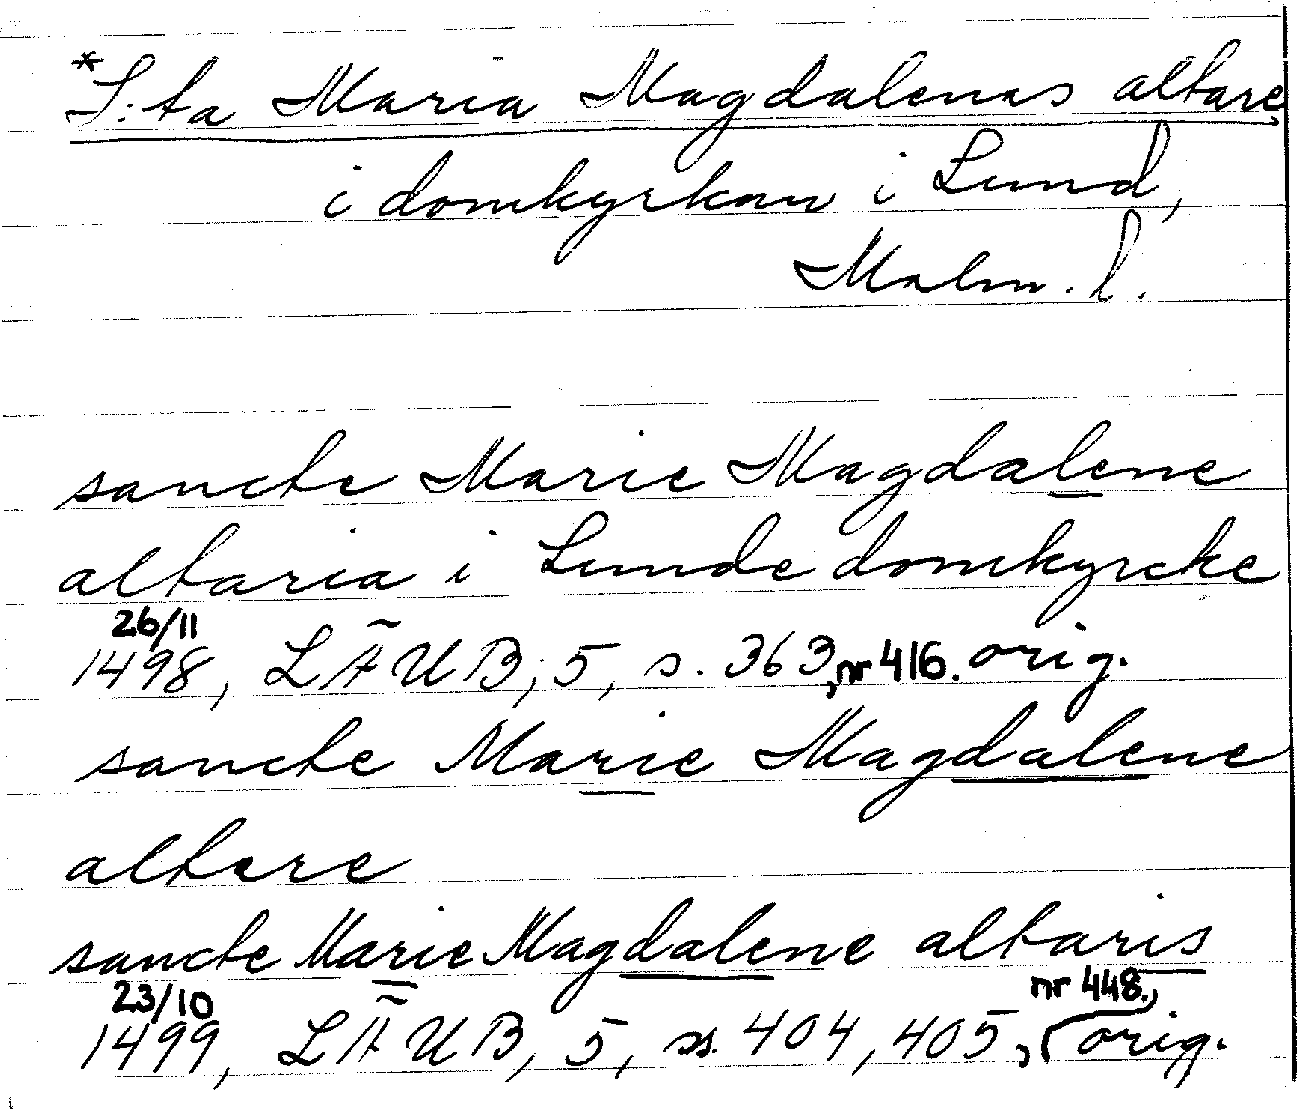 *S:ta Maria Magdalenas altare,
i domkyrkan i Lund,
Malm. l.
sancte Marie Magdalene
altaria i Lunde domkyrcke
26/11
1498, LÄUB, 5, s. 363, nr 416. orig.
sancte Marie Magdalene
altere
sancte Marie Magdalene altaris
23/10
nr 448.,
1499, LÄUB, 5, ss. 404, 405, orig.